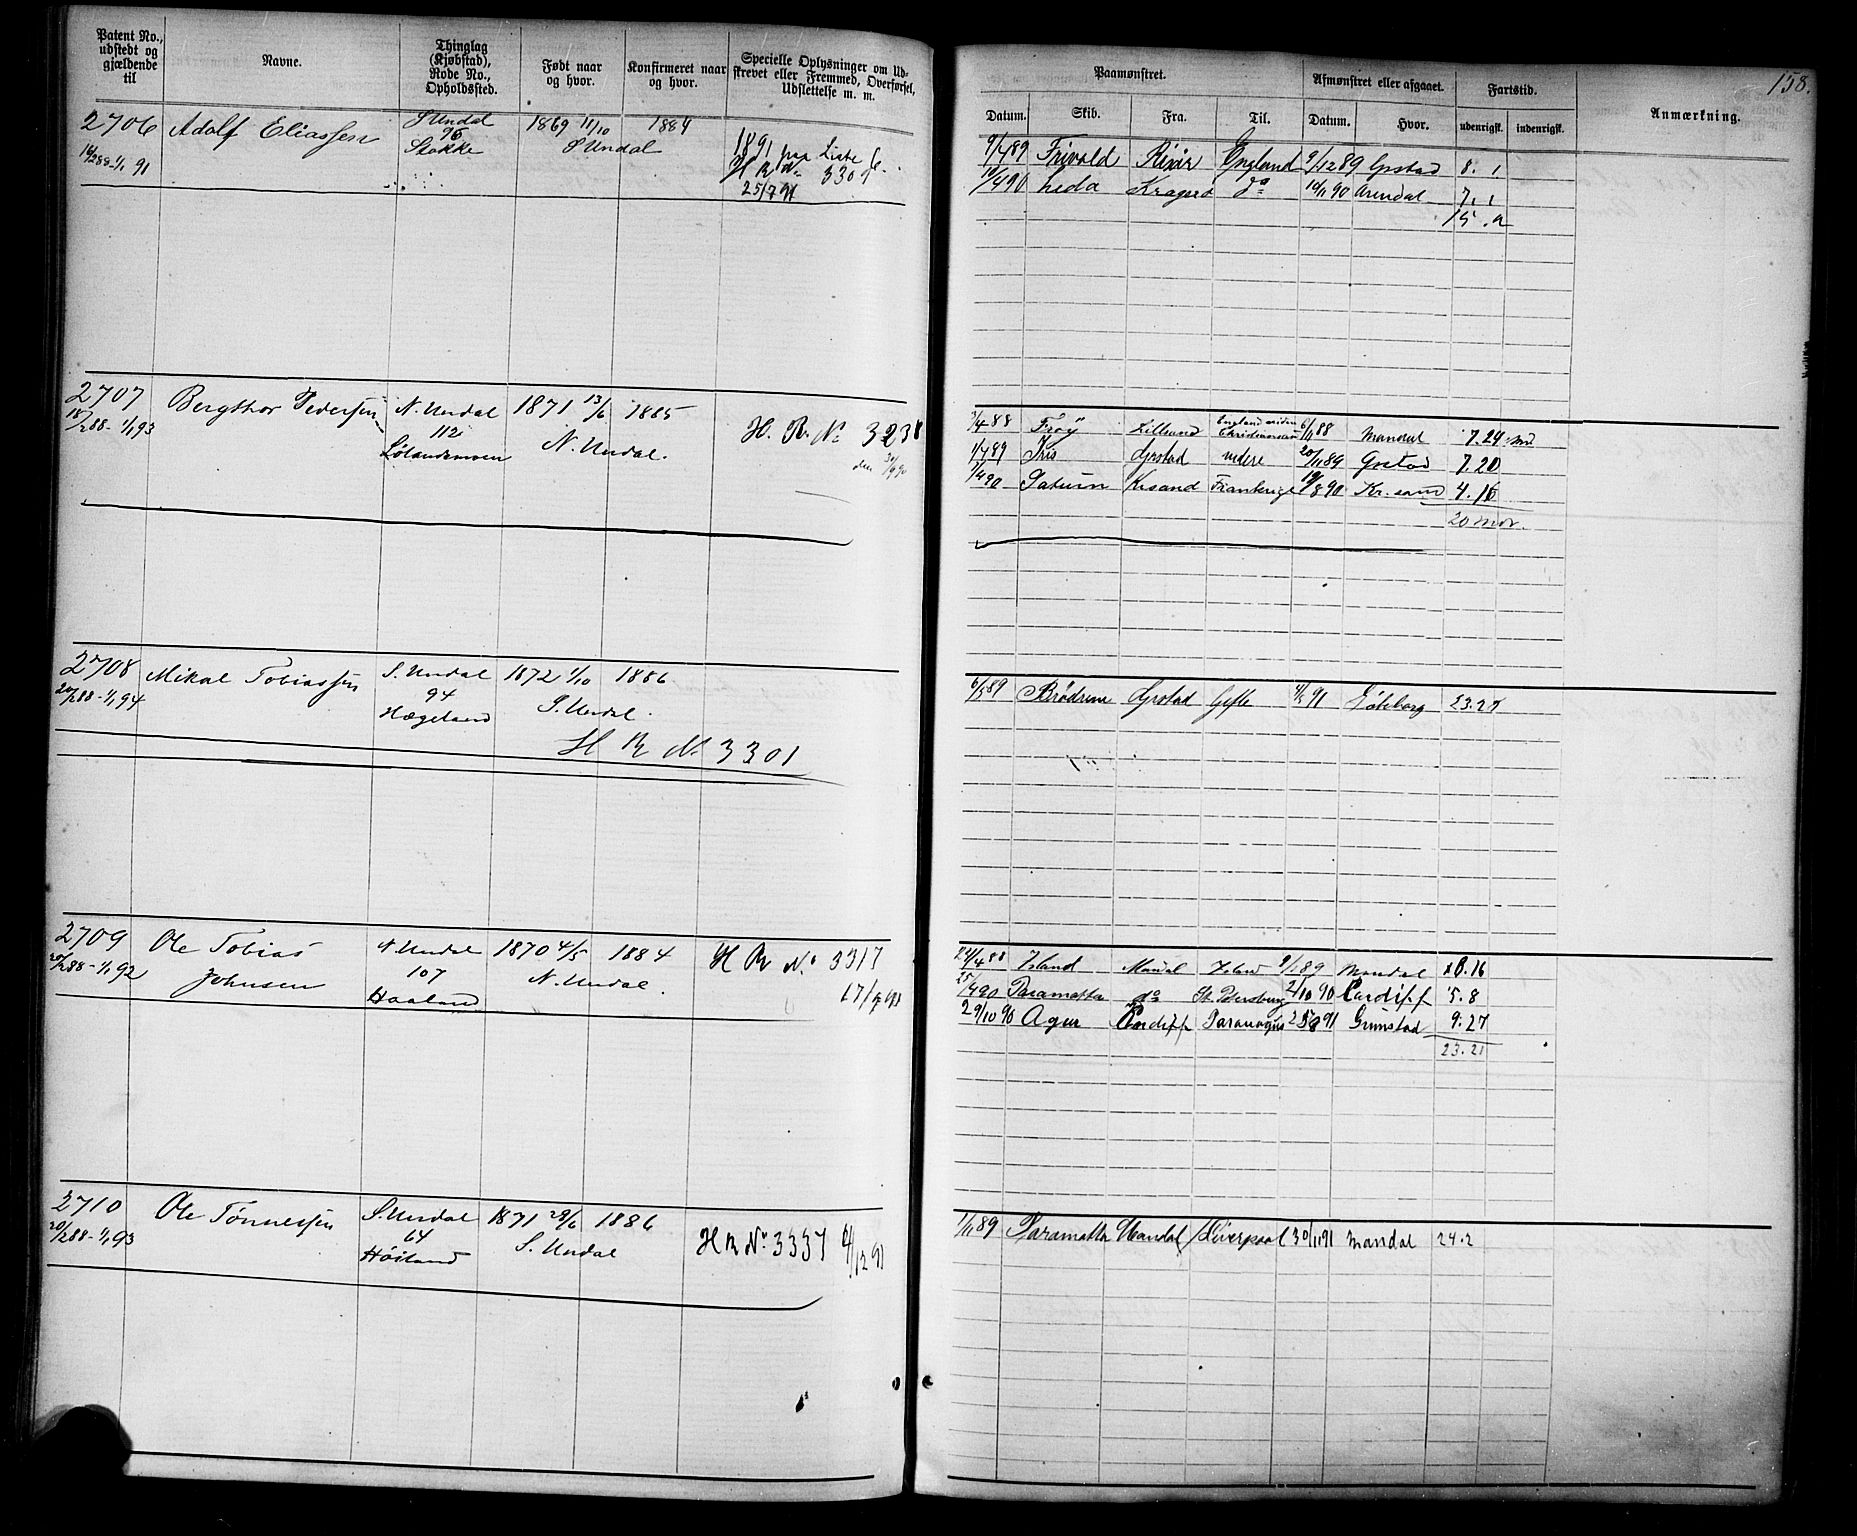 158.
Patent No., udstedt og gjældende til
Navne.
Thinglag (Kjøbstad), Rode No., Opholdssted.
Født naar og hvor.
Konfirmeret naar og hvor.
Specielle Oplysninger om Udskrevet eller Fremmed, Overførsel, Udslettelse m. m.
Paamønstret.
Afmønstret eller afgaaet.
Fartstid.
Anmærkning.
Datum. Skib. Fra. Til. Datum. Hvor. udenrigsk. indenrigsk.
2706 Adolf Eliassen S Undal 1869 11/10 1884
95
Stokke
S Undal
1891 paa Liste
H R No 3309
25/7 91
9/4 89 Frivold Risør England 9/12 89 Grstad 8. 1
/4 90 Leda Kragerø do 10/11 90 Arendal 7. 1
15. 2
2707 Bergthor Pedersen N. Undal 1871 13/6 1885
18/2 88 - 1/1 93
112
Lølandsmoen
N. Undal.
H. R. No 3238
3/4 88 Frøy Lillesand England siden Christianssand 6/11 88 Mandal 7. 29 md
1/4 89 Iris Grstad videre 20/11 89 Grstad 7. 20
/4 90 Saturn Krsand Frankrige 19/8 90 Kr. sand 4. 16
20 mdr.
2708 Mikal Tobiassen S. Undal 1872 1/10 1886
20/2 88 - 1/1 94
94
Hægeland
S. Undal.
H R No 3301
6/5 89 Brødrene Grstad Gefle 91 Göteborg 23. 27
2709 Ole Tobias Johnsen N. Undal 1870 4/5 1884
20/2 88 - 1/1 92
107
Haaland
N. Undal.
H R No 3317
17/9 91
24/4 88 Island Mandal Island 9/1 89 Mandal 8. 16
25/4 90 Paramatta do St. Petersburg 2/10 90 Cardiff 5. 8
29/10 90 Agur Cardiff Paranagua 25/8 91 Grimstad 9. 27
23. 21
2710 Ole Tønnessen S. Undal 1871 29/6 1886
20/2 88 - 1/1 93
64
Høiland
S. Undal
H R No 3337 4/12 91
1/11 89 Paramatta Mandal / Liverpool 30/11 91 Mandal 24. 2